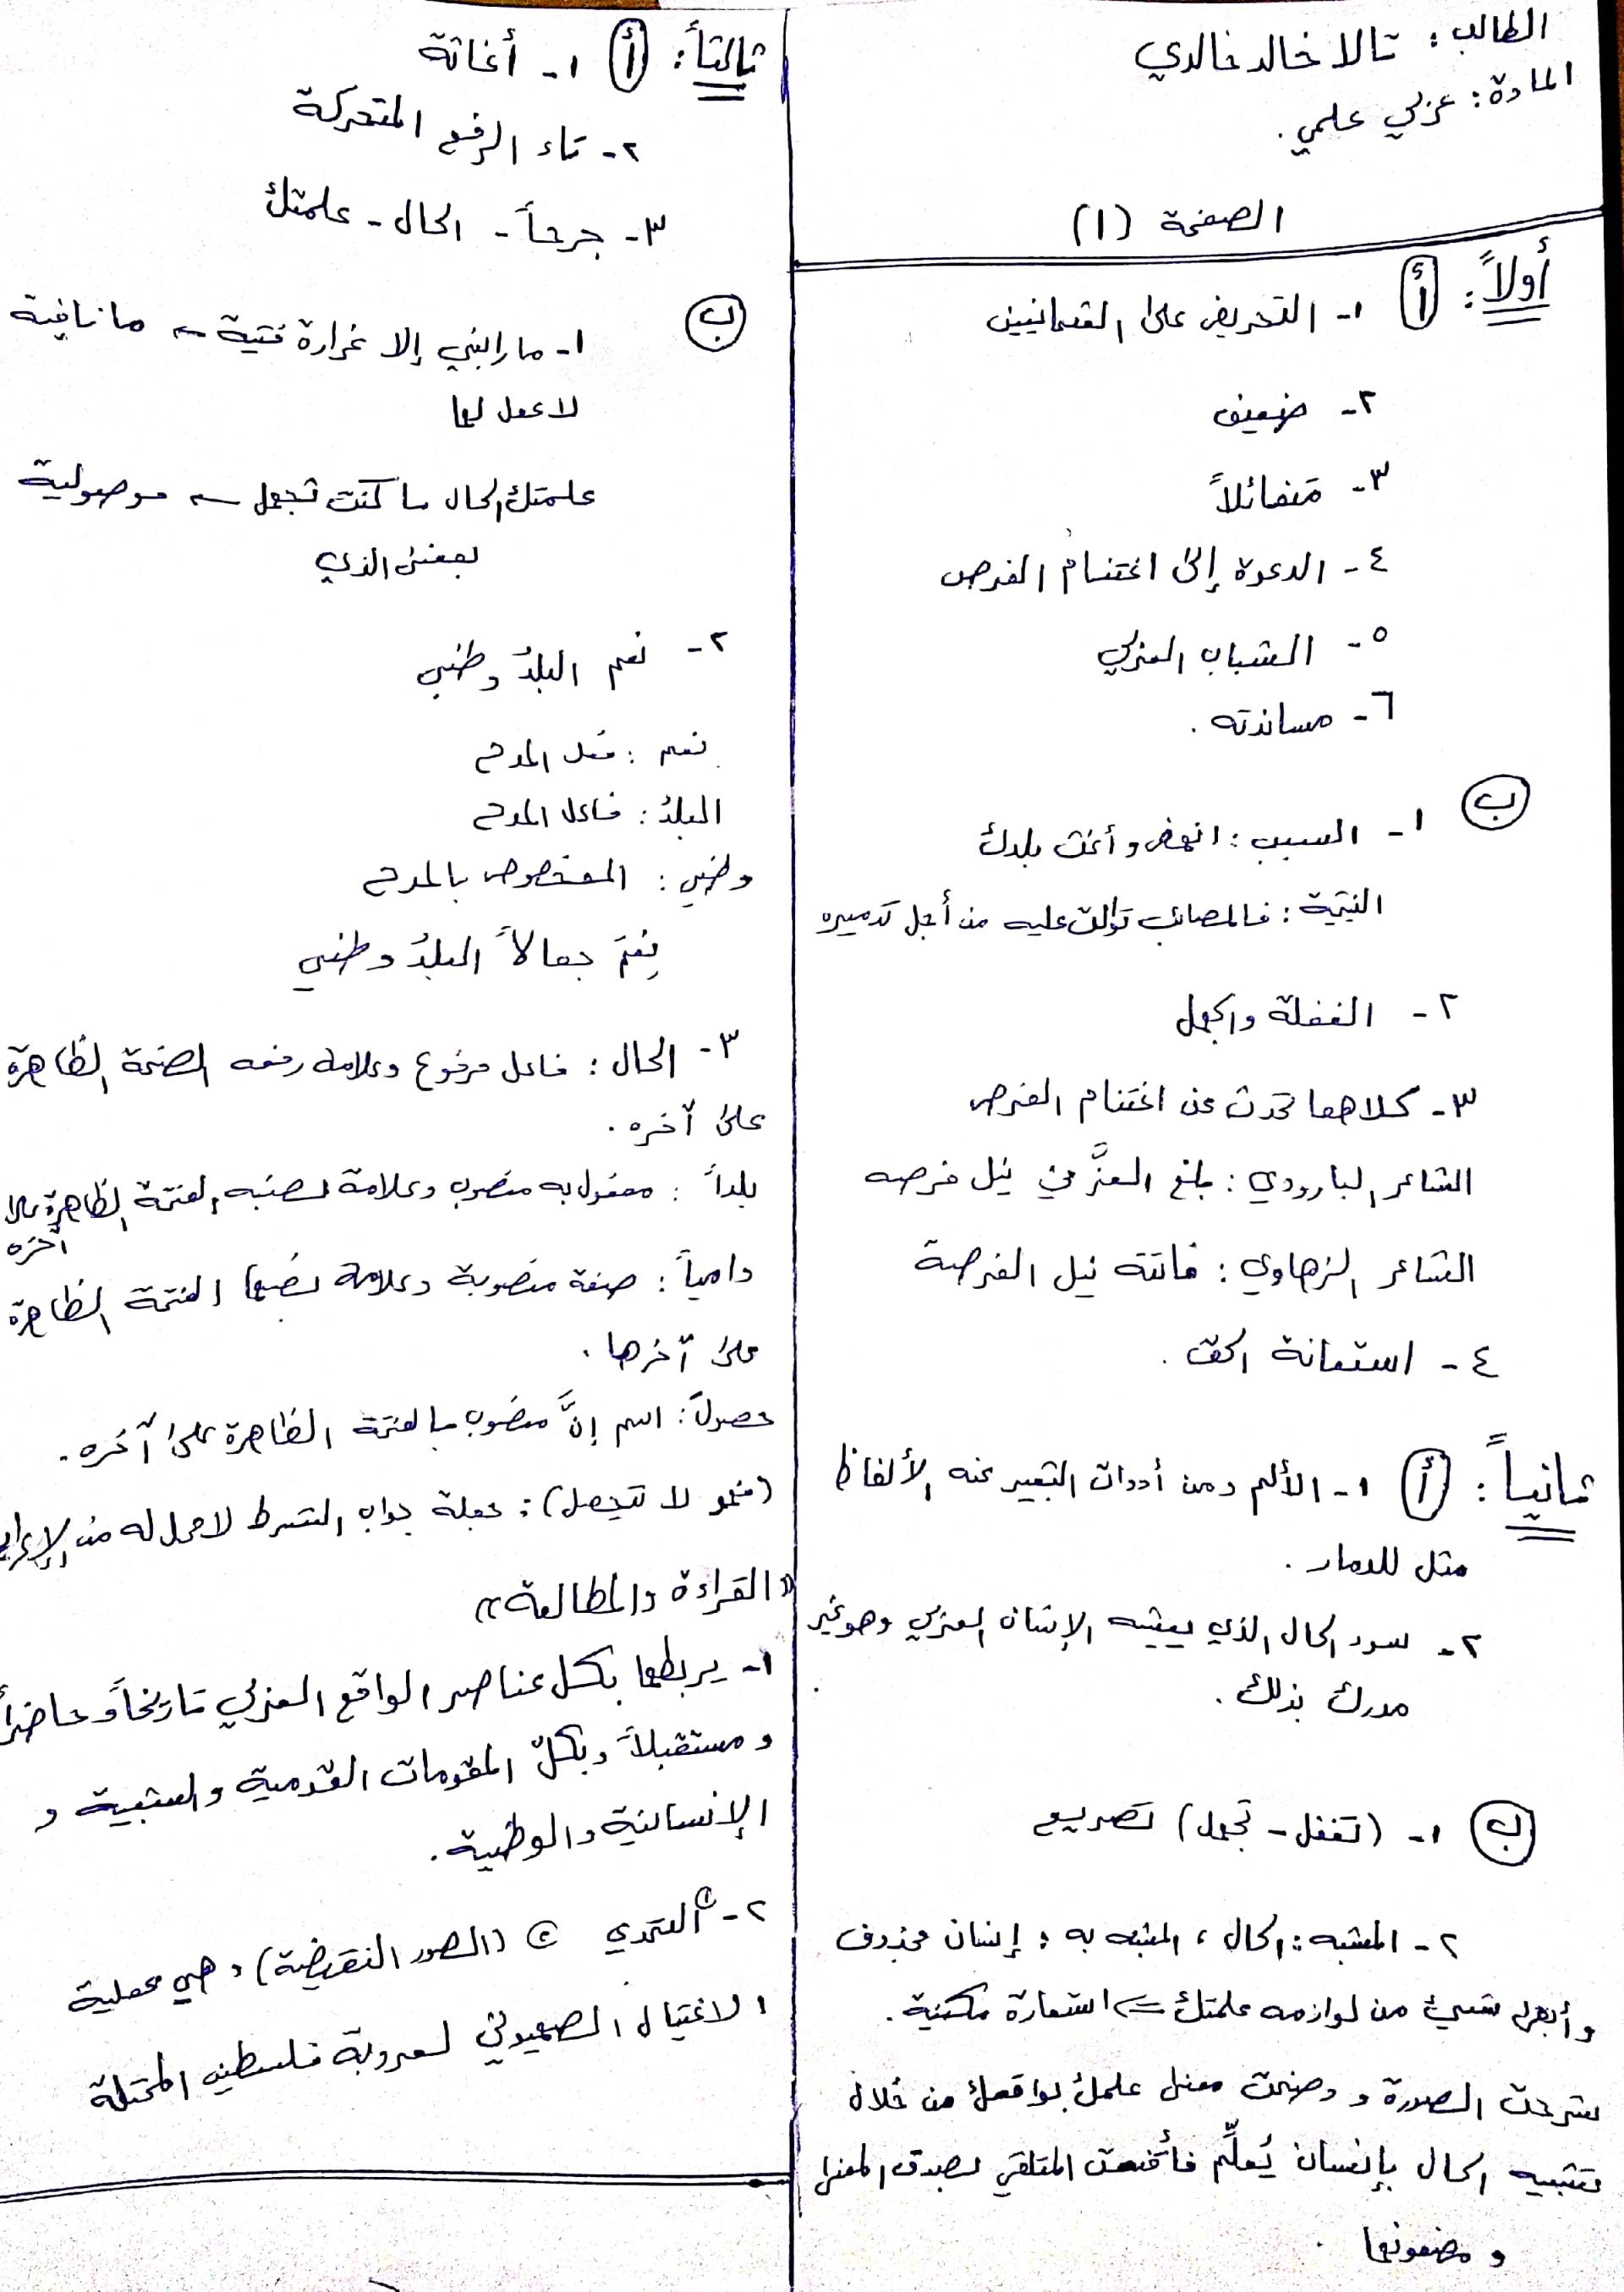 الطالب: تالا خالد خالدي
المادة: عربي علمي.
الصفحة (١)
أولاً: أ ١- التحريض على العثمانيين
٢- ضعيف
٣- متفائلاً
٤- الدعوة إلى اغتنام الفرص
٥- الشباب العربي
٦- مساندته.
ب ١- السبب: انهض وأغث بلدك
النتيجة: فالمصائب توالت عليه من أجل تدميره
٢- الغفلة والجهل
٣- كلاهما تحدث عن اغتنام الفرص
الشاعر البارودي: بلغ العزَّ في نيل فرصه
الشاعر الزهاوي: فاتته نيل الفرصة
٤- استعانة الحق.
ثانياً: أ ١- الألم ومن أدوات التعبير عنه الألفاظ
مثل للدمار.
٢- سوء الحال الذي يعيشه الإنسان العربي وهو غير
مدرك بذلك.
ب ١- (تغفل - تجهل) تصريع
٢- المشبه: الحال، المشبه به: إنسان محذوف
وأبقى شيئ من لوازمه علمتك => استعارة مكنية.
شرحت الصورة و وضحت معنى علمك بواقعك من خلال
تشبيه الحال بإنسان يُعلِّم فأقنعت المتلقي بصدق المعنى
و مضمونها.
ثالثاً: أ ١- أغاثة
٢- تاء الرفع المتحركة
٣- جرحاً - الحال - علمتك
ب ١- ما رابني إلا غرارة فتية ← ما نافية
لا عمل لها
علمتك الحال ما كنت تجهل ← موصولية
بمعنى الذي
٢- نعم البلدُ وطني
نعم: فعل المدح
البلدُ: فاعل المدح
وطني: المخصوص بالمدح
نِعْمَ جمالاً البلدُ وطني
٣- الحال: فاعل مرفوع وعلامة رفعه الضمة الظاهرة
على آخره.
بلداً: مفعول به منصوب وعلامة نصبه الفتحة الظاهرة على
آخره
دامياً: صفة منصوبة وعلامة نصبها الفتحة الظاهرة
على آخرها.
حصولَ: اسم إنَّ منصوب بالفتحة الظاهرة على آخره.
(فلمو لا تتجهل): جملة جواب الشرط لا محل له من الإعراب
«القراءة والمطالعة»
١- يربطها بكل عناصر الواقع العربي تاريخاً وحاضراً
و مستقبلاً وبكلّ المقومات القومية والشعبية و
الإنسانية والوطنية.
٢- ① التحدي ② (الصور النقيضة) وهي عملية
الاغتيال الصهيوني لعروبة فلسطين المحتلة